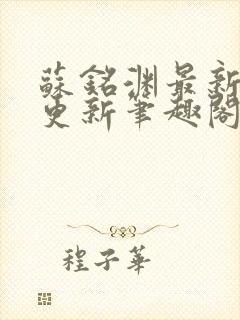 蘇銘淵最新
更新筆趣閣
程子華